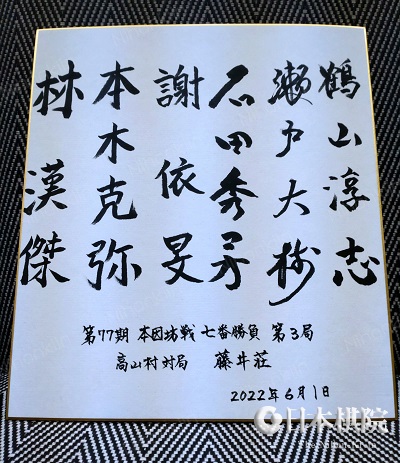 鶴山淳志
瀬戸大樹
石田秀芳
謝依旻
本木克弥
林漢傑
第77期 本因坊戦 七番勝負 第3局
高山村対局 藤井荘
2022年6月1日
日本棋院